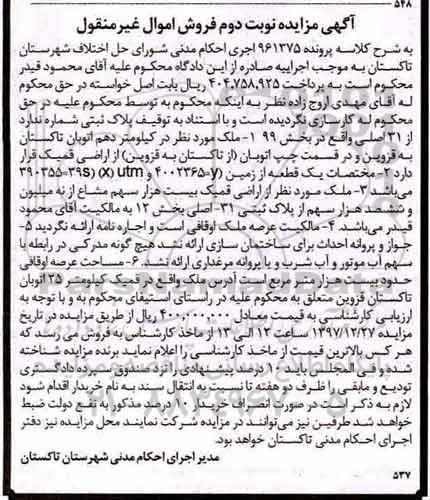 ۵۴۸
آگهی مزایده نوبت دوم فروش اموال غیرمنقول
به شرح کلاسه پرونده ۹۶۱۳۷۵ اجری احکام مدنی شورای حل اختلاف شهرستان
تاکستان به موجب اجراییه صادره از این دادگاه محکوم علیه آقای محمود قیدر
محکوم است به پرداخت ۴۰۴,۷۵۸,۹۲۵ ریال بابت اصل خواسته در حق محکوم
له آقای مهدی آروج زاده نظر به اینکه محکوم به توسط محکوم علیه در حق
محکوم له کارسازی نگردیده است و با استناد به توقیف پلاک ثبتی شماره ندارد
از ۳۱ اصلی واقع در بخش ۹۹ ۱- ملک مورد نظر در کیلومتر دهم اتوبان تاکستان
به قزوین و در قسمت چپ اتوبان (از تاکستان به قزوین) از اراضی قمیک قرار
دارد ۲- مختصات یک قطعه از زمین (y=۴۰۰۲۳۶۵ و utm (x) ۳۹۰۳۵۵=۳۹s)
می‌باشد ۳- ملک مورد نظر از اراضی قمیک بیست هزار سهم مشاع از نه میلیون
و ششصد هزار سهم از پلاک ثبتی ۳۱- اصلی بخش ۱۲ به مالکیت آقای محمود
قیدر می‌باشد. ۴- مالکیت عرصه ملک اوقافی است و اجاره نامه ارائه نگردید ۵-
جواز و پروانه احداث برای ساختمان سازی ارائه نشد هیچ گونه مدرکی در رابطه با
سهم آب موتور و آب شرب و یا پروانه مرغداری ارائه نشد. ۶- مساحت عرصه اوقافی
حدود بیست هزار متر مربع است آدرس ملک واقع در قمیک کیلومتر ۲۵ اتوبان
تاکستان قزوین متعلق به محکوم علیه در راستای استیفای محکوم به و با توجه به
ارزیابی کارشناسی به قیمت معادل ۴۰۰,۰۰۰,۰۰۰ ریال از طریق مزایده در تاریخ
مزایده ۱۳۹۷/۱۲/۲۷ ساعت ۱۲ الی ۱۳ از ماخذ کارشناسی به فروش می رسد که
هر کس بالاترین قیمت از ماخذ کارشناسی را اعلام نماید برنده مزایده شناخته
شده و فی المجلس باید ۱۰ درصد پیشنهادی را نزد صندوق سپرده دادگستری
تودیع و مابقی را ظرف دو هفته تا نسبت به انتقال سند به نام خریدار اقدام شود
لازم به ذکر است در صورت انصراف خریدار ۱۰ درصد مذکور به نفع دولت ضبط
خواهد شد طرفین نیز می‌توانند در مزایده شرکت نمایند محل مزایده نیز دفتر
اجرای احکام مدنی تاکستان خواهد بود.
مدیر اجرای احکام مدنی شهرستان تاکستان
۵۳۷